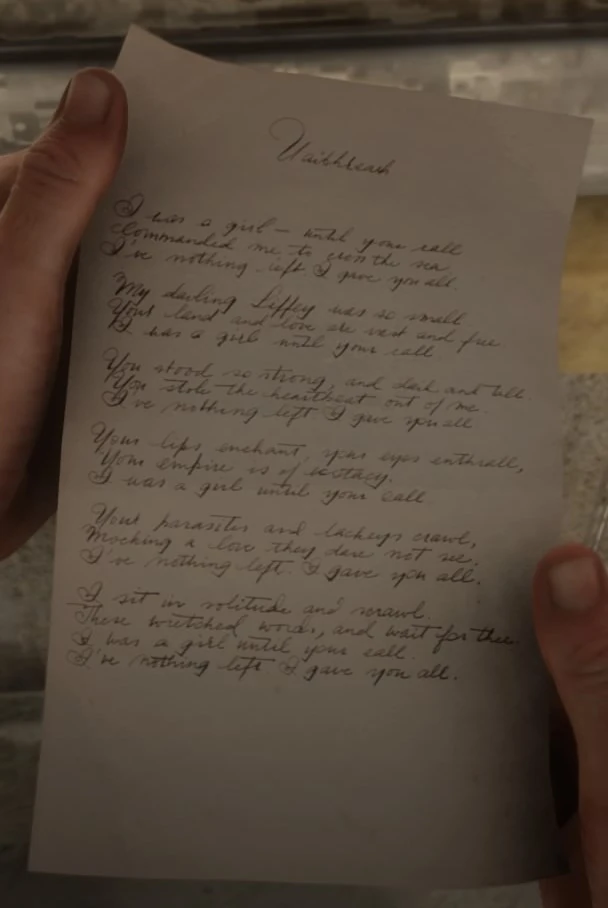 Uaibhreach
I was a girl — until your call
Commanded me to cross the sea
I've nothing left I gave you all.
My darling Liffey was so small
Your land and love are vast and free
I was a girl until your call
You stood so strong, and dark and tall.
You stole the heartbeat out of me.
I've nothing left I gave you all
Your lips enchant, your eyes enthrall,
Your empire is of ecstacy.
I was a girl until your call
Your parasites and lackeys crawl,
Mocking a love they dare not see.
I've nothing left. I gave you all.
I sit in solitude and scrawl
These wretched words, and wait for thee
I was a girl until your call.
I've nothing left. I gave you all.